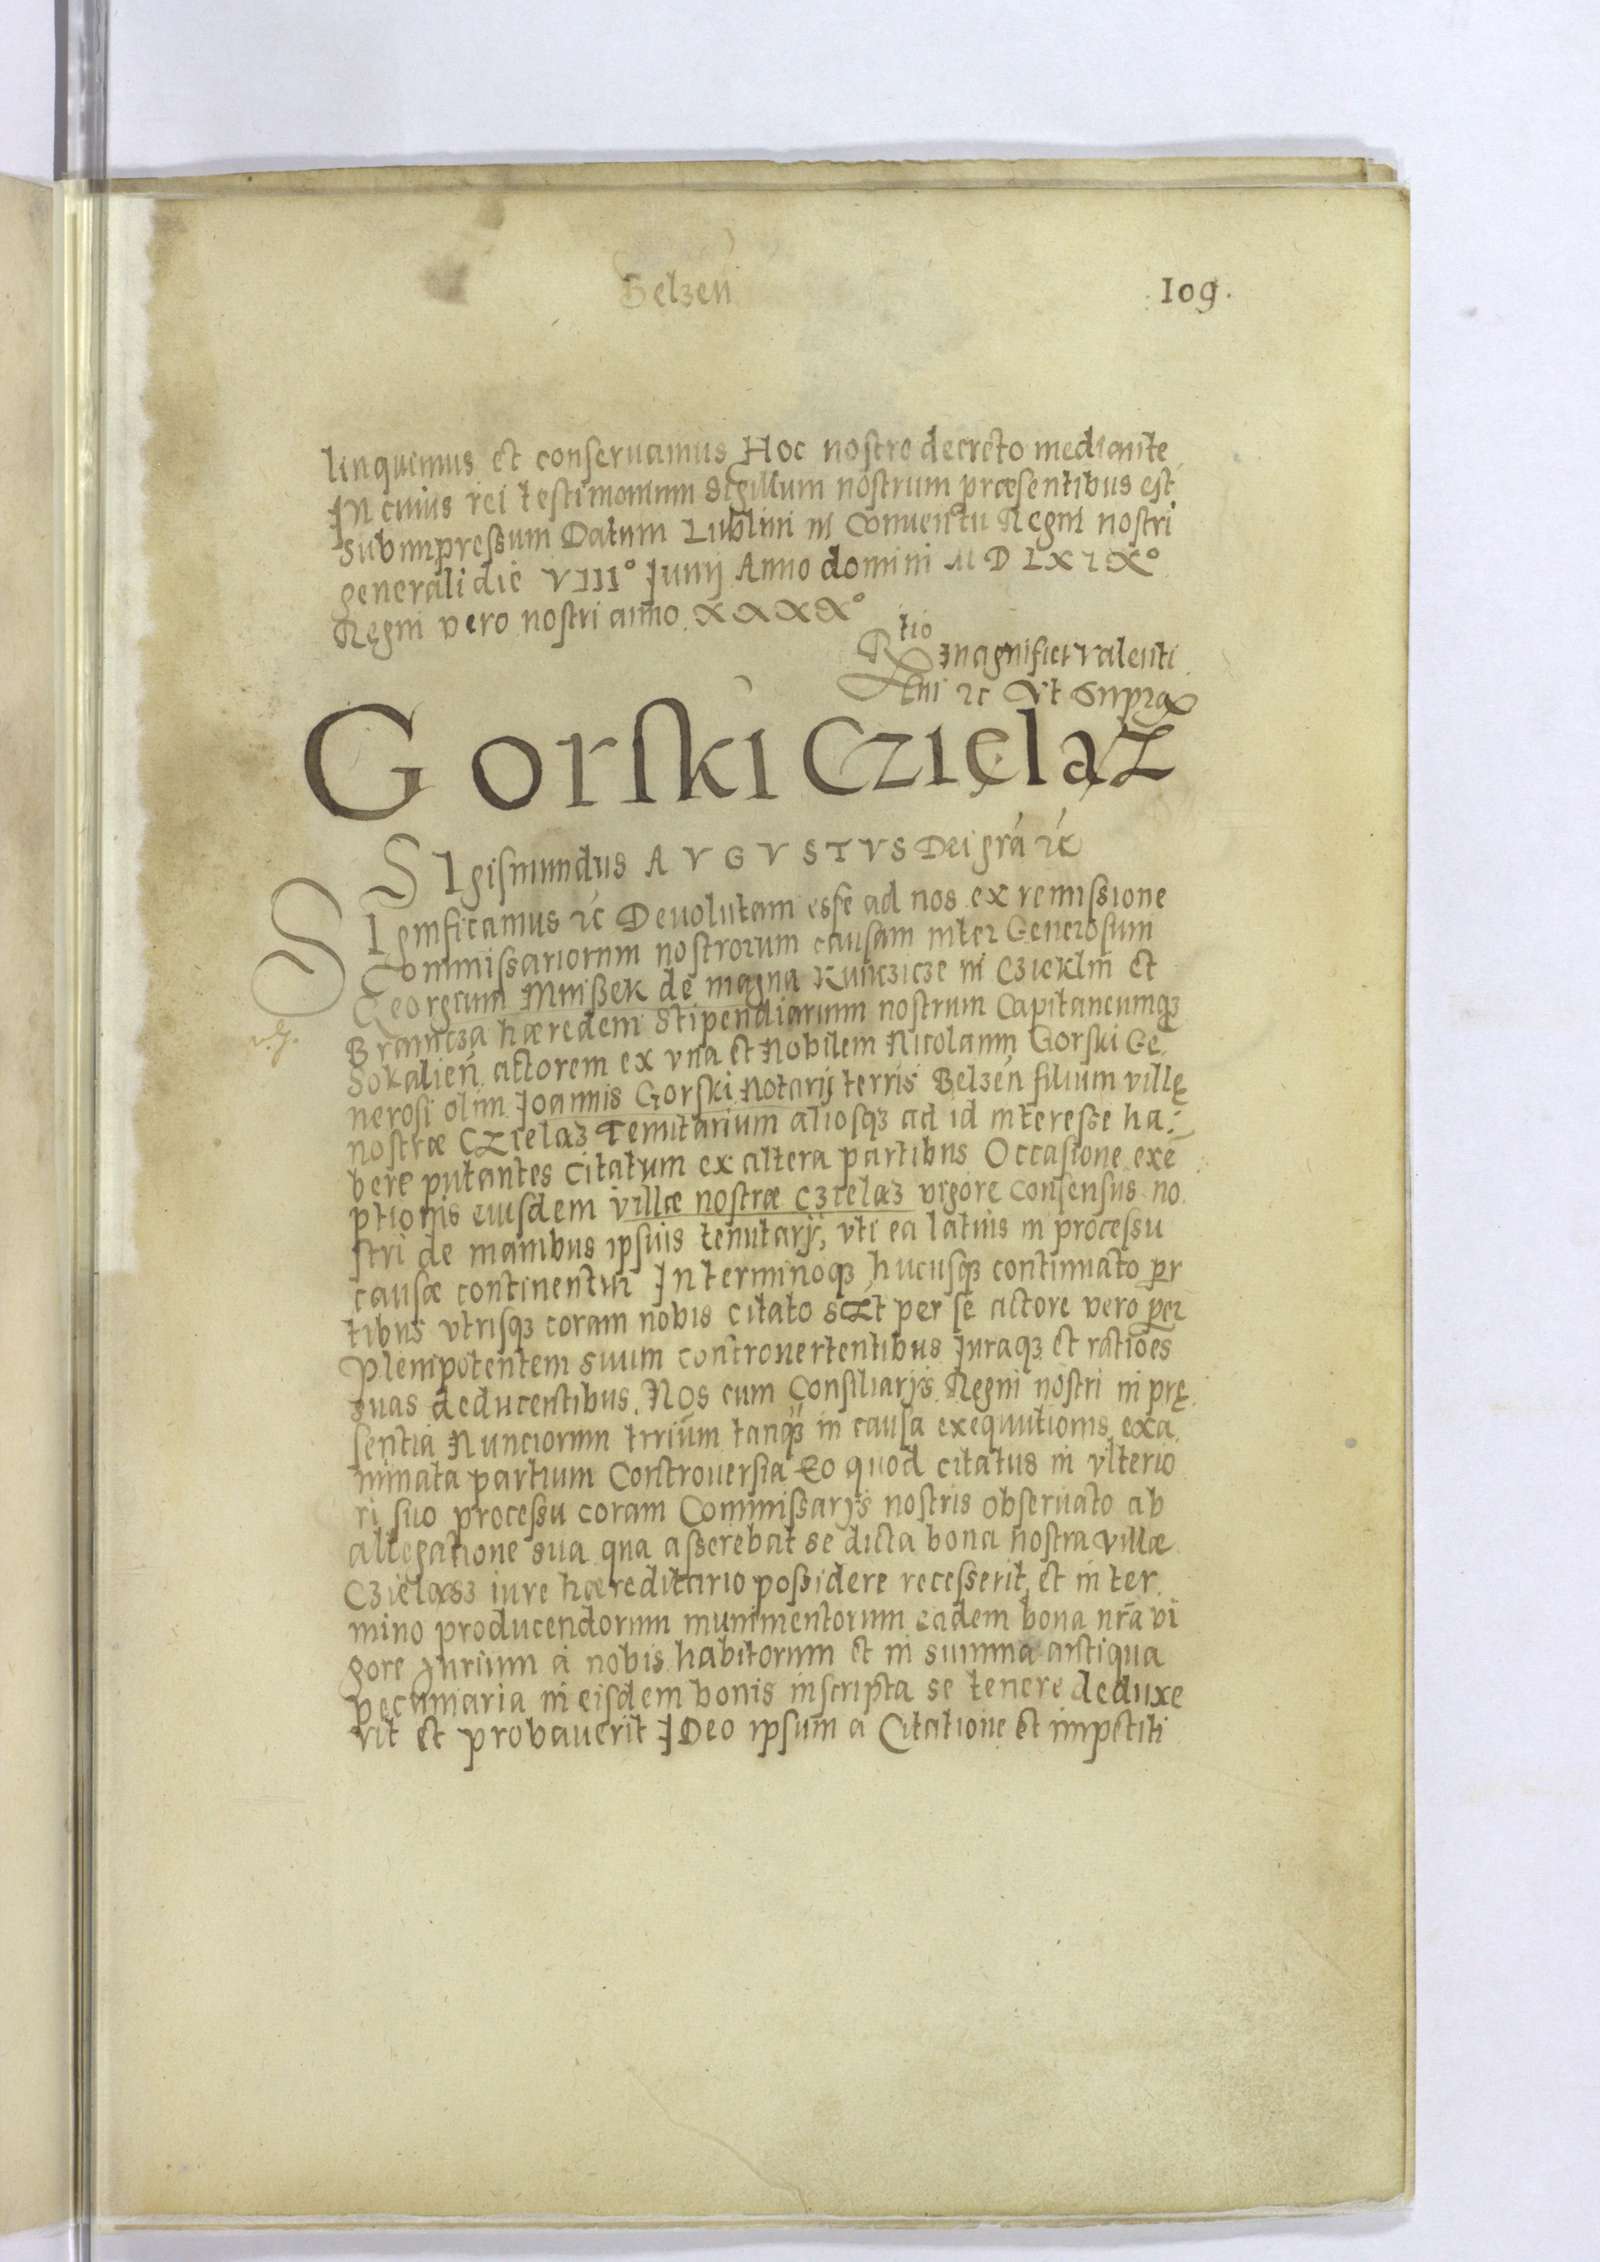 Belzeń
109.
linquimus et conseruamus Hoc nostro decreto mediante
In cuius rei testimonium Sigillum nostrum præsentibus est
Subimpressum Datum Lublini in Conuentu Regni nostri
generali die VIII° Iunij Anno domini M D LXIX°
Regni vero nostri anno XXXX°
tio
R magnifici Valenti
ni ꝛc Vt Supra
Gorski Czięląz
SIgismundus AVGVSTVS Dei gra ꝛc
SIgnificamus ꝛc Deuolutam esse ad nos ex remissione
Commissariorum nostrorum causam inter Generosum
Georgium Mnißek de magna Kunczicze in Czieklin et
Brantcza hæredem Stipendiarium nostrum Capitaneumqꝫ
Sokalień actorem ex vna et Nobilem Nicolaum Gorski Ge
nerosi olim Joannis Gorski Notarij terris Belzeń filium villę
nostræ Czielaz Tenutarium aliosqꝫ ad id interesse ha:
bere putantes Citatum ex altera partibus Occasione exe
ptionis eiusdem villæ nostræ Czielaz vigore consensus no
stri de manibus ipsius tenutarij, vti ea latius in processu
causæ continentur In terminoqꝫ hucusqꝫ continuato par
tibus vtrisqꝫ coram nobis citato sczt per se actore vero per
Plenipotentem suum controuertentibus Iuraqꝫ et rationes
suas deducentibus. Nos cum Consiliarijs Regni nostri in prę
sentia Nunciorum trrium tanqꝫ in causa exequutionis exa
minata partium Controuersia Eo quod citatus in vlterio
ri suo processu coram Commissarijs nostris obseruato ab
allegatione sua qua asserebat se dicta bona nostra villæ
Czielasz iure hæreditario possidere recesserit et in ter
mino producendorum munimentorum eadem bona nrã vi
gore Iurium a nobis habitorum et in summa antiqua
pecuniaria in eisdem bonis inscripta se tenere deduxe
rit et probauerit IDeo ipsum a Citatione et impetiti